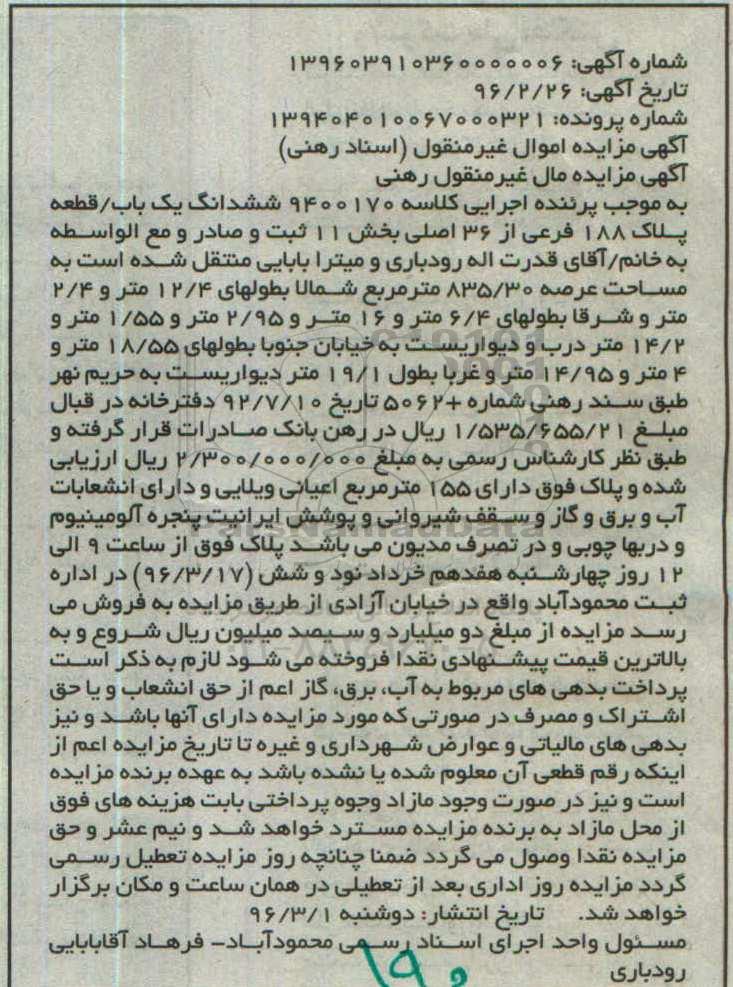 شماره آگهی: ۱۳۹۶۰۳۹۱۰۳۶۰۰۰۰۰۰۶
تاریخ آگهی: ۹۶/۲/۲۶
شماره پرونده: ۱۳۹۴۰۴۰۱۰۰۶۷۰۰۰۳۲۱
آگهی مزایده اموال غیرمنقول (اسناد رهنی)
آگهی مزایده مال غیرمنقول رهنی
به موجب پرئنده اجرایی کلاسه ۹۴۰۰۱۷۰ ششدانگ یک باب/قطعه
پلاک ۱۸۸ فرعی از ۳۶ اصلی بخش ۱۱ ثبت و صادر و مع الواسطه
به خانم/آقای قدرت اله رودباری و میترا بابایی منتقل شده است به
مساحت عرصه ۸۳۵/۳۰ مترمربع شمالا بطولهای ۱۲/۴ متر و ۲/۴
متر و شرقا بطولهای ۶/۴ متر و ۱۶ متر و ۲/۹۵ متر و ۱/۵۵ متر و
۱۴/۲ متر درب و دیواریست به خیابان جنوبا بطولهای ۱۸/۵۵ متر و
۴ متر و ۱۴/۹۵ متر و غربا بطول ۱۹/۱ متر دیواریست به حریم نهر
طبق سند رهنی شماره +۵۰۶۲ تاریخ ۹۲/۷/۱۰ دفترخانه در قبال
مبلغ ۱/۵۳۵/۶۵۵/۲۱ ریال در رهن بانک صادرات قرار گرفته و
طبق نظر کارشناس رسمی به مبلغ ۲/۳۰۰/۰۰۰/۰۰۰ ریال ارزیابی
شده و پلاک فوق دارای ۱۵۵ مترمربع اعیانی ویلایی و دارای انشعابات
آب و برق و گاز و سقف شیروانی و پوشش ایرانیت پنجره آلومینیوم
و دربها چوبی و در تصرف مدیون می باشد پلاک فوق از ساعت ۹ الی
۱۲ روز چهارشنبه هفدهم خرداد نود و شش (۹۶/۳/۱۷) در اداره
ثبت محمودآباد واقع در خیابان آزادی از طریق مزایده به فروش می
رسد مزایده از مبلغ دو میلیارد و سیصد میلیون ریال شروع و به
بالاترین قیمت پیشنهادی نقدا فروخته می شود لازم به ذکر است
پرداخت بدهی های مربوط به آب، برق، گاز اعم از حق انشعاب و یا حق
اشتراک و مصرف در صورتی که مورد مزایده دارای آنها باشد و نیز
بدهی های مالیاتی و عوارض شهرداری و غیره تا تاریخ مزایده اعم از
اینکه رقم قطعی آن معلوم شده یا نشده باشد به عهده برنده مزایده
است و نیز در صورت وجود مازاد وجوه پرداختی بابت هزینه های فوق
از محل مازاد به برنده مزایده مسترد خواهد شد و نیم عشر و حق
مزایده نقدا وصول می گردد ضمنا چنانچه روز مزایده تعطیل رسمی
گردد مزایده روز اداری بعد از تعطیلی در همان ساعت و مکان برگزار
خواهد شد. تاریخ انتشار: دوشنبه ۹۶/۳/۱
مسئول واحد اجرای اسناد رسمی محمودآباد– فرهاد آقابابایی
رودباری